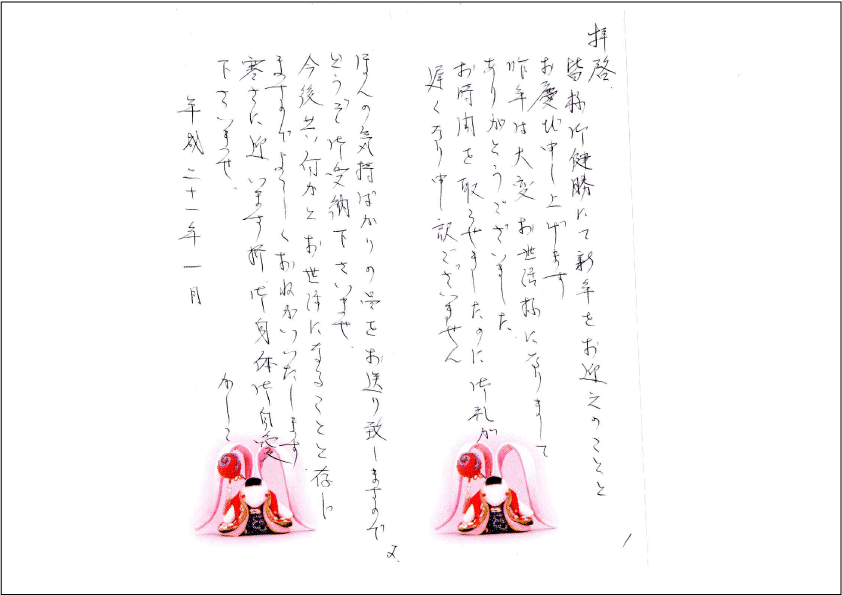 拝啓
皆様御健勝にて新年をお迎えのことと
お慶び申し上げます
昨年は大変お世話様になりまして
ありがとうございました
お時間を取らせましたのに御礼が
遅くなり申訳ございません
1
ほんの気持ばかりの品をお送り致しますので
どうぞ御受納下さいませ
今後共何かとお世話になることと存じ
ますがよろしくおねがいいたします
寒さに迎います折御身体御自愛
下さいませ
かしこ
平成二十一年一月
2